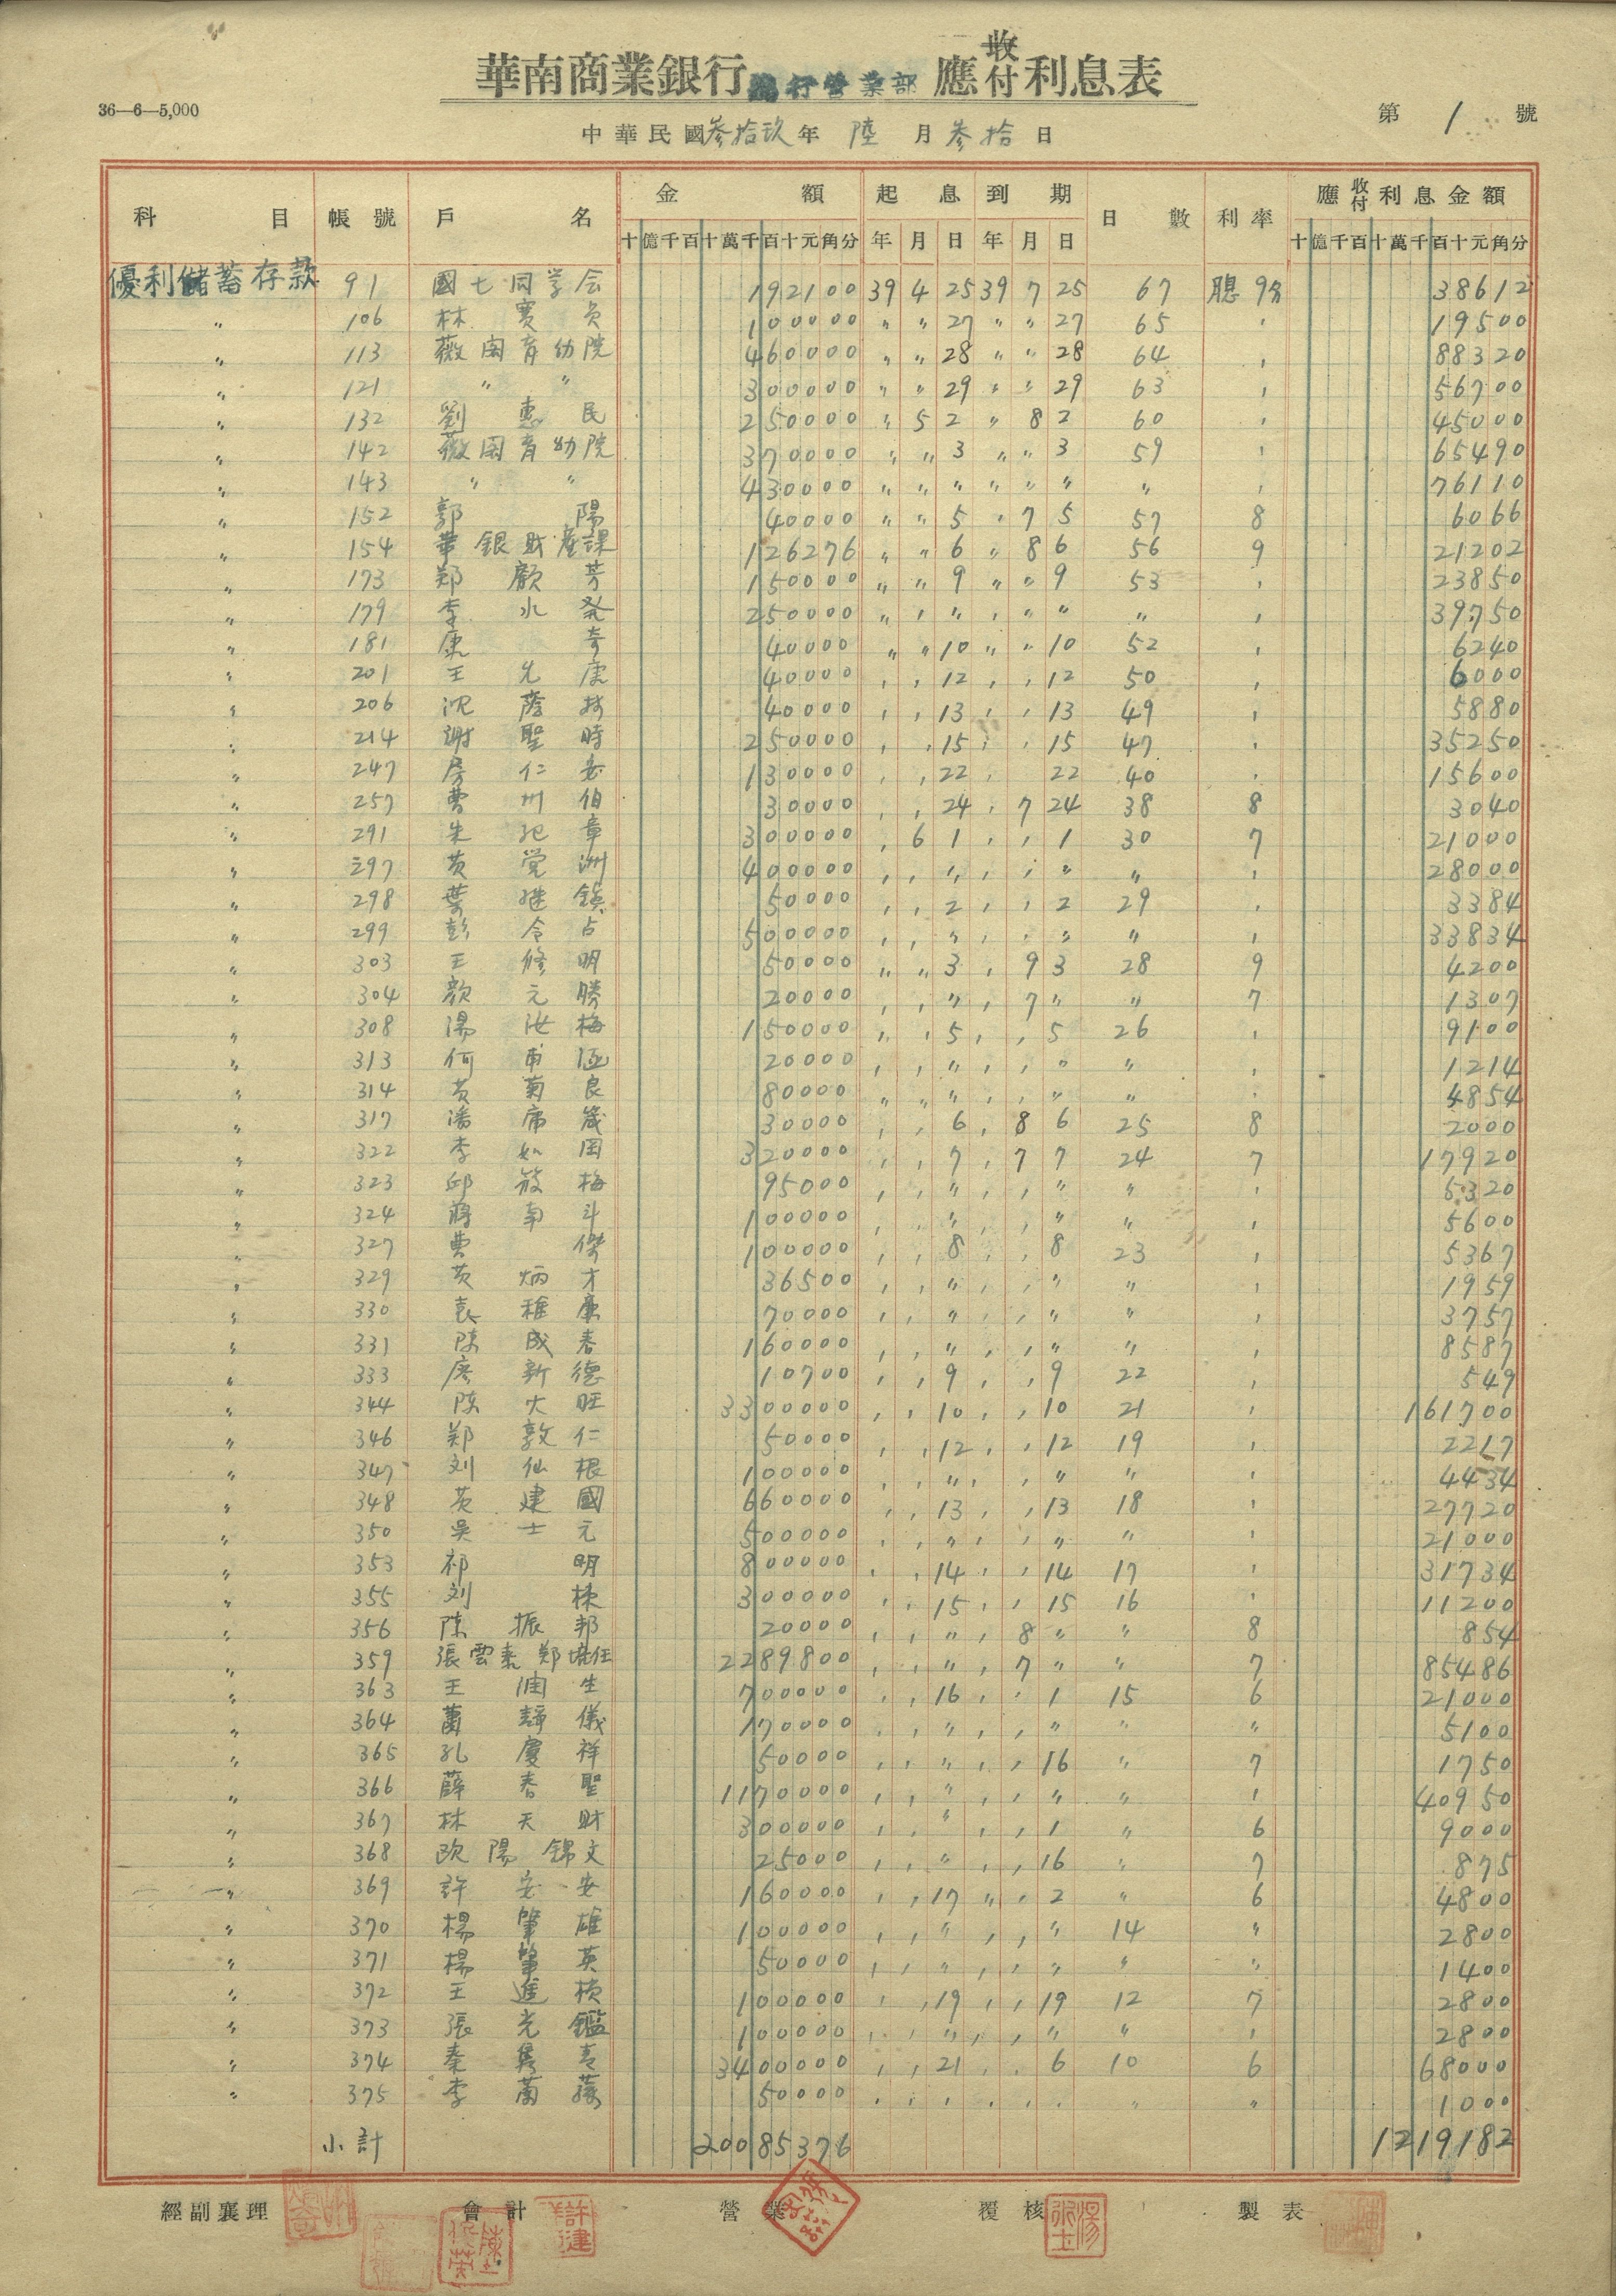 華南商業銀行 總行營業部 應收付利息表
36—6—5,000
第 1 號
中華民國叁拾玖年 陸 月 叁拾 日
科目 帳號 戶名 金額 起息 到期 日數 利率 應收付利息金額
十億千百十萬千百十元角分 年 月 日 年 月 日 十億千百十萬千百十元角分
優利儲蓄存款 91 國七同學会 192100 39 4 25 39 7 25 67 月息 9分 38612
〃 106 林 實 100000 〃 〃 27 〃 〃 27 65 〃 19500
〃 113 薇閣育幼院 460000 〃 〃 28 〃 〃 28 64 〃 88320
〃 121 〃 〃 300000 〃 〃 29 〃 〃 29 63 〃 56700
〃 132 劉惠民 250000 〃 5 2 〃 8 2 60 〃 45000
〃 142 薇閣育幼院 370000 〃 〃 3 〃 〃 3 59 〃 65490
〃 143 〃 〃 430000 〃 〃 〃 〃 〃 〃 〃 〃 76110
〃 152 郭陽 40000 〃 〃 5 〃 7 5 57 8 6066
〃 154 華銀財產課 126276 〃 〃 6 〃 8 6 56 9 21202
〃 173 鄭顧芳 150000 〃 〃 9 〃 〃 9 53 〃 23850
〃 179 李水発 250000 〃 〃 〃 〃 〃 〃 〃 〃 39750
〃 181 康奇 40000 〃 〃 10 〃 〃 10 52 〃 6240
〃 201 王先康 40000 〃 〃 12 〃 〃 12 50 〃 6000
〃 206 沈蔭 40000 〃 〃 13 〃 〃 13 49 〃 5880
〃 214 謝聖時 250000 〃 〃 15 〃 〃 15 47 〃 35250
〃 247 房仁 130000 〃 〃 22 〃 22 40 〃 15600
〃 257 曹州伯 30000 〃 〃 24 〃 7 24 38 8 3040
〃 291 朱祀章 300000 〃 6 1 〃 〃 1 30 7 21000
〃 297 黄覚洲 400000 〃 〃 〃 〃 〃 〃 〃 〃 28000
〃 298 葉継鎮 50000 〃 〃 2 〃 〃 2 29 〃 3384
〃 299 彭令占 500000 〃 〃 〃 〃 〃 〃 〃 〃 33834
〃 303 王修明 50000 〃 〃 3 〃 9 3 28 9 4200
〃 304 顏元勝 20000 〃 〃 〃 〃 7 〃 〃 7 1307
〃 308 湯汝梅 150000 〃 〃 5 〃 〃 5 26 〃 9100
〃 313 何甫 20000 〃 〃 〃 〃 〃 〃 〃 〃 1214
〃 314 黄菊良 80000 〃 〃 〃 〃 〃 〃 〃 〃 4854
〃 317 潘席箴 30000 〃 〃 6 〃 8 6 25 8 2000
〃 322 李如岡 320000 〃 〃 7 〃 7 7 24 7 17920
〃 323 邱筱梅 95000 〃 〃 〃 〃 〃 〃 〃 〃 5320
〃 324 蔣南斗 100000 〃 〃 〃 〃 〃 〃 〃 〃 5600
〃 327 曹傑 100000 〃 〃 8 〃 〃 8 23 〃 5367
〃 329 黄炳才 36500 〃 〃 〃 〃 〃 〃 〃 〃 1959
〃 330 袁稚廉 70000 〃 〃 〃 〃 〃 〃 〃 〃 3757
〃 331 陳成春 160000 〃 〃 〃 〃 〃 〃 〃 〃 8587
〃 333 廖新德 10700 〃 〃 9 〃 〃 9 22 〃 549
〃 344 陳大旺 3300000 〃 〃 10 〃 〃 10 21 〃 161700
〃 346 鄭敦仁 50000 〃 〃 12 〃 〃 12 19 〃 2217
〃 347 刘仙根 100000 〃 〃 〃 〃 〃 〃 〃 〃 4434
〃 348 黄建國 660000 〃 〃 13 〃 〃 13 18 〃 27720
〃 350 吳士元 500000 〃 〃 〃 〃 〃 〃 〃 〃 21000
〃 353 祁明 800000 〃 〃 14 〃 〃 14 17 〃 31734
〃 355 刘棟 300000 〃 〃 15 〃 〃 15 16 〃 11200
〃 356 陳振邦 20000 〃 〃 〃 〃 8 〃 〃 8 854
〃 359 張雲素 鄭堆任 2289800 〃 〃 〃 〃 7 〃 〃 7 85486
〃 363 王潤生 700000 〃 〃 16 〃 〃 1 15 6 21000
〃 364 蕭靜儀 170000 〃 〃 〃 〃 〃 〃 〃 〃 5100
〃 365 孔慶祥 50000 〃 〃 〃 〃 〃 16 〃 7 1750
〃 366 薛春聖 1170000 〃 〃 〃 〃 〃 〃 〃 〃 40950
〃 367 林天財 300000 〃 〃 〃 〃 〃 1 〃 6 9000
〃 368 欧陽錦文 25000 〃 〃 〃 〃 〃 16 〃 7 875
〃 369 許安安 160000 〃 〃 17 〃 〃 2 〃 6 4800
〃 370 楊肇雄 100000 〃 〃 〃 〃 〃 〃 14 〃 2800
〃 371 楊肇英 50000 〃 〃 〃 〃 〃 〃 〃 〃 1400
〃 372 王進楨 100000 〃 〃 19 〃 〃 19 12 7 2800
〃 373 張光鑑 100000 〃 〃 〃 〃 〃 〃 〃 〃 2800
〃 374 秦喜 3400000 〃 〃 21 〃 〃 6 10 6 68000
〃 375 李蘭 50000 〃 〃 〃 〃 〃 〃 〃 〃 1000
小計 20085376 1219182
經副襄理 會計 營業 覆核 製表